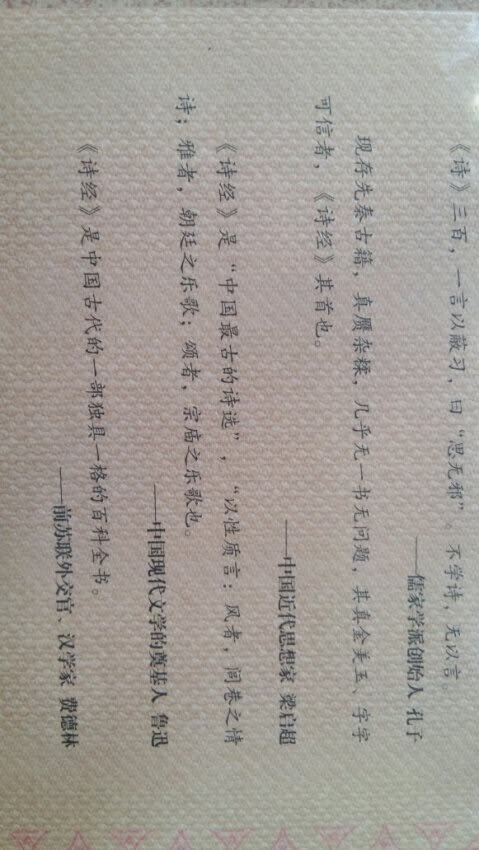 《诗》三百，一言以蔽习，曰“思无邪”。不学诗，无以言。
——儒家学派创始人 孔子
现存先秦古籍，真赝杂糅，几乎无一书无问题，其真金美玉、字字
可信者，《诗经》其首也。
——中国近代思想家 梁启超
《诗经》是“中国最古的诗选”，“以性质言：风者，闾巷之情
诗；雅者，朝廷之乐歌；颂者，宗庙之乐歌也。
——中国现代文学的奠基人 鲁迅
《诗经》是中国古代的一部独具一格的百科全书。
——前苏联外交官、汉学家 费德林